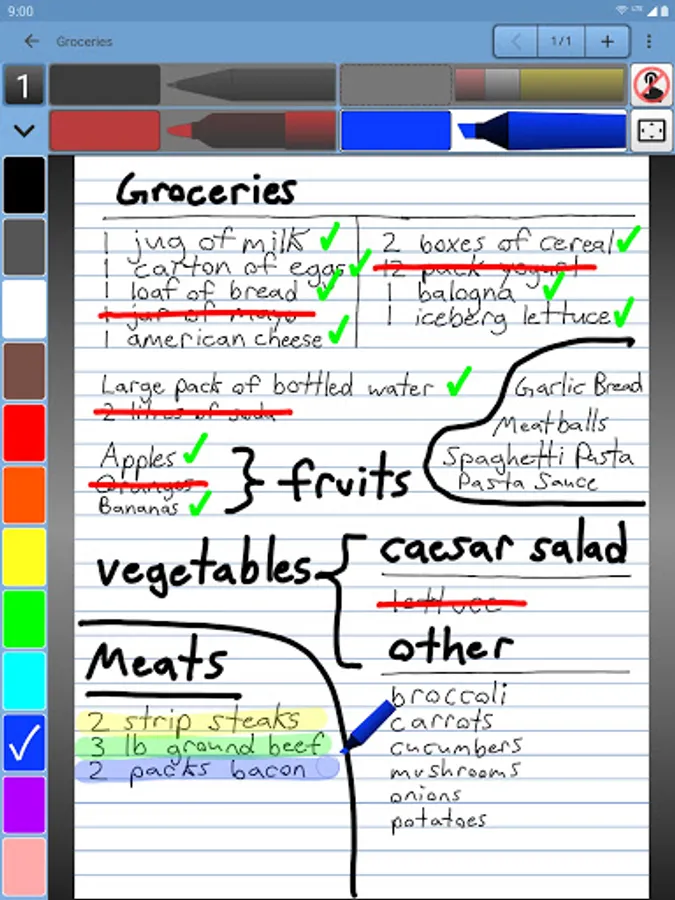 9:00
LTE
Groceries
1/1
1
Groceries
1 jug of milk
1 carton of eggs
1 loaf of bread
1 jar of mayo
1 american cheese
2 boxes of cereal
12 pack yogurt
1 balogna
1 iceberg lettuce
Large pack of bottled water
2 litres of soda
Garlic Bread
Meatballs
Spaghetti Pasta
Pasta Sauce
Apples
Oranges
Bananas
fruits
vegetables
caesar salad
lettuce
other
broccoli
carrots
cucumbers
mushrooms
onions
potatoes
Meats
2 strip steaks
3 lb ground beef
2 packs bacon